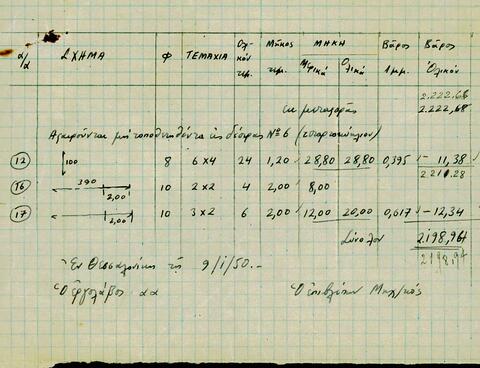 α/α ΣΧΗΜΑ Φ ΤΕΜΑΧΙΑ Ολικόν τεμ. Μήκος τεμ. ΜΗΚΗ Μερικά Ολικά Βάρος 1 μμ. Βάρος Ολικόν
2.222,68
εκ μεταφοράς 2.222,68
Αφαιρούνται μη τοποθετηθέντα εις δέσιμας Νο 6
12 100 8 6 x 4 24 1,20 28,80 28,80 0,395 - 11,38
2211.28
16 390 2,00 10 2 x 2 4 2,00 8,00
17 2,00 10 3 x 2 6 2,00 12,00 20,00 0,617 - 12,34
Σύνολον 2.198,96
2198,94
Εν Θεσσαλονίκη τη 9/1/50.-
Ο εργολάβος αα Ο επιβλέπων Μηχ/κός